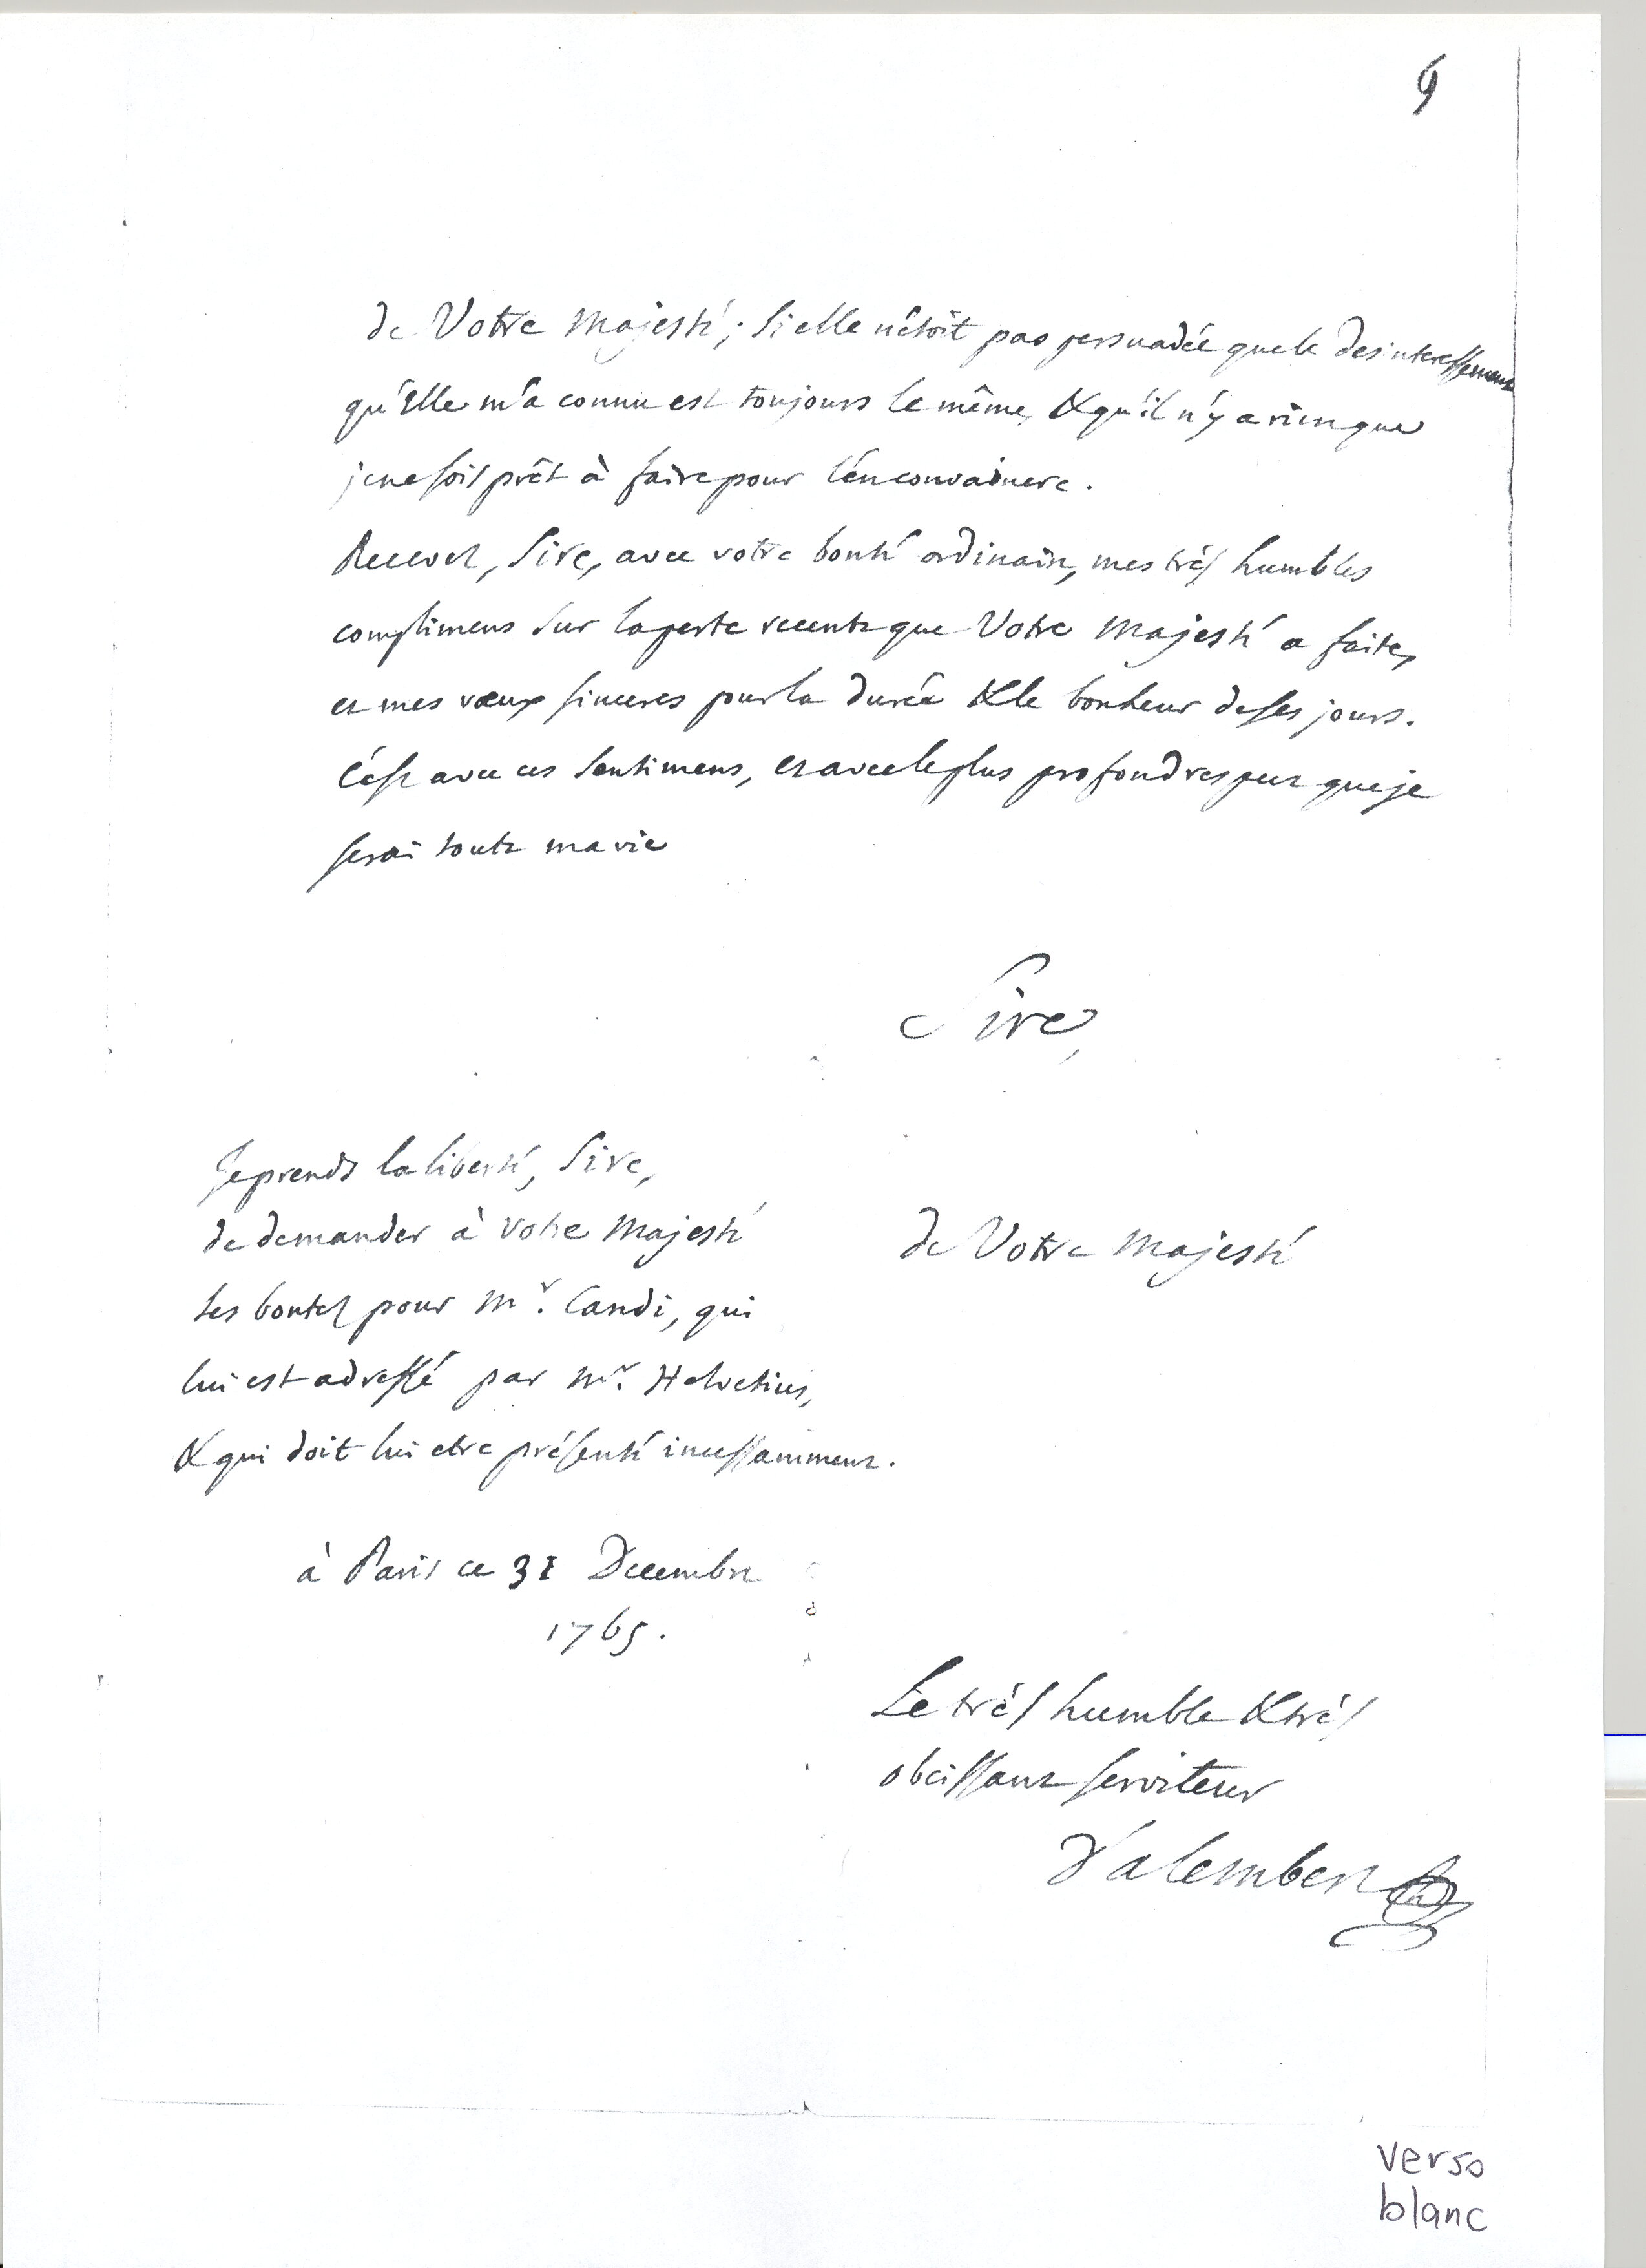 9
de Votre Majesté; si elle n'étoit pas persuadée que le desinteressement
qu'Elle m'a connu est toujours le même, & qu'il n'y a rien que
je ne sois prêt à faire pour l'en convaincre.
Recevez, Sire, avec votre bonté ordinaire, mes très humbles
complimens sur la perte recente que Votre Majesté a faite,
et mes vœux sinceres pour la durée & le bonheur de ses jours.
C'est avec ces sentimens, et avec le plus profond respect que je
serai toute ma vie
Sire,
Je prends la liberté, Sire,
de demander à Votre Majesté
ses bontez pour Mr. Candi, qui
lui est adressé par Mr. Helvetius,
& qui doit lui etre présenté incessamment.
de Votre Majesté
à Paris ce 31 Decembre
1765.
Le très humble & très
obeissant serviteur
D'alembert
verso
blanc